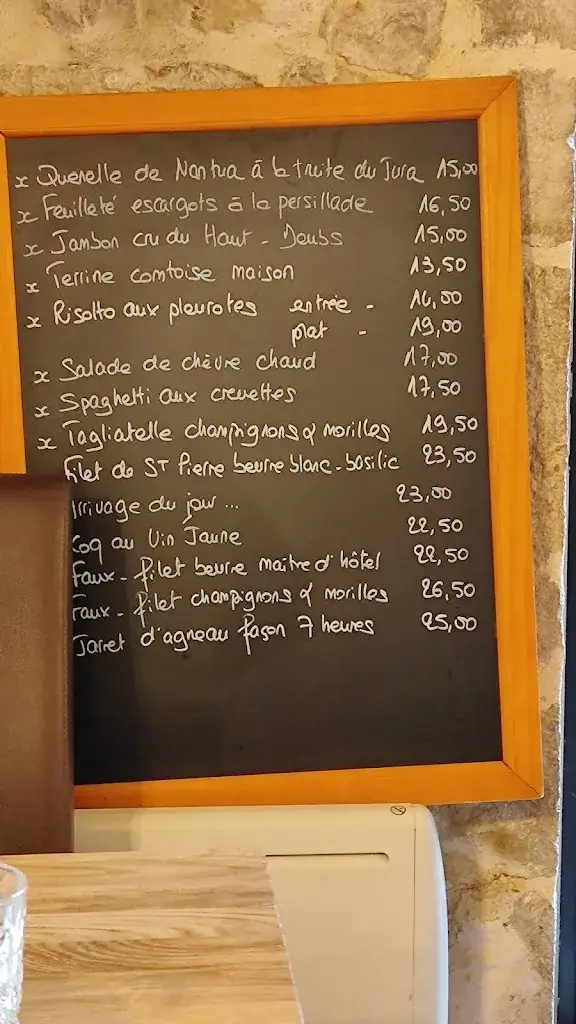 x Quenelle de Nantua à la truite du Jura 15,00
x Feuilleté escargots à la persillade 16,50
x Jambon cru du Haut-Doubs 15,00
x Terrine comtoise maison 13,50
x Risotto aux pleurotes entrée - 14,00
plat - 19,00
x Salade de chèvre chaud 17,00
x Spaghetti aux crevettes 17,50
x Tagliatelle champignons & morilles 19,50
Filet de ST Pierre beurre blanc-basilic 23,50
Arrivage du jour... 23,00
Coq au Vin Jaune 22,50
Faux-filet beurre maître d'hôtel 22,50
Faux-filet champignons & morilles 26,50
Jarret d'agneau façon 7 heures 25,00